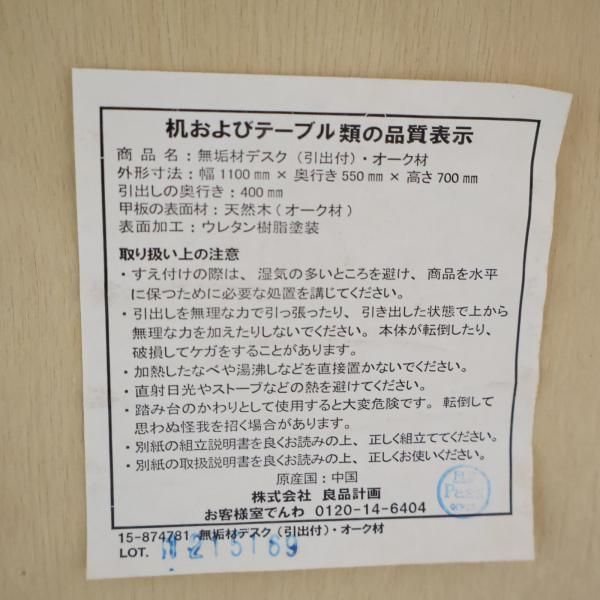 机およびテーブル類の品質表示
商品名：無垢材デスク（引出付）・オーク材
外形寸法：幅1100mm × 奥行き550mm × 高さ700mm
引出しの奥行き：400mm
甲板の表面材：天然木（オーク材）
表面加工：ウレタン樹脂塗装
取り扱い上の注意
・すえ付けの際は、湿気の多いところを避け、商品を水平
に保つために必要な処置を講じてください。
・引出しを無理な力で引っ張ったり、引き出した状態で上から
無理な力を加えたりしないでください。本体が転倒したり、
破損してケガをすることがあります。
・加熱したなべや湯沸しなどを直接置かないでください。
・直射日光やストーブなどの熱を避けてください。
・踏み台のかわりとして使用すると大変危険です。転倒して
思わぬ怪我を招く場合があります。
・別紙の組立説明書を良くお読みの上、正しく組立ててください。
・別紙の取扱説明書を良くお読みの上、正しくお使いください。
原産国：中国
株式会社 良品計画
お客様室でんわ 0120-14-6404
15-874781 無垢材デスク（引出付）・オーク材
LOT.